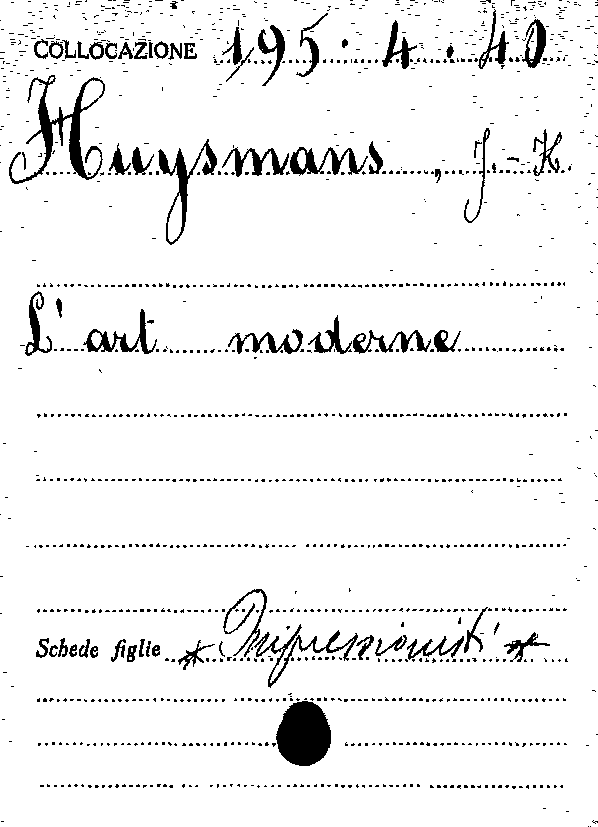 COLLOCAZIONE 195.4.40
Huysmans, J.-K.
L'art moderne
Schede figlie * Impressionisti *